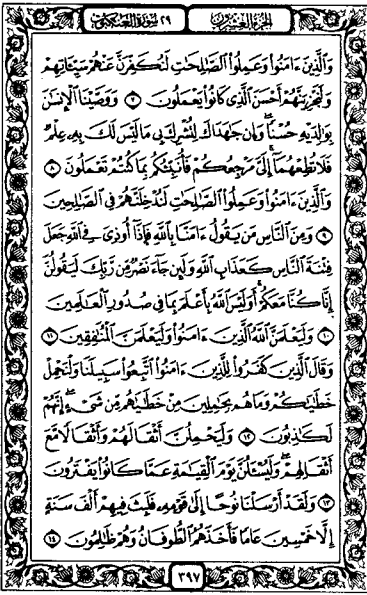 سورة العنكبوت ٢٩ الجزء العشرون
وَالَّذِينَ ءَامَنُوا وَعَمِلُوا الصَّـٰلِحَـٰتِ لَنُكَفِّرَنَّ عَنْهُمْ سَيِّـَٔاتِهِمْ
وَلَنَجْزِيَنَّهُمْ أَحْسَنَ الَّذِى كَانُوا يَعْمَلُونَ ٧ وَوَصَّيْنَا الْإِنسَـٰنَ
بِوَٰلِدَيْهِ حُسْنًا وَإِن جَـٰهَدَاكَ لِتُشْرِكَ بِى مَا لَيْسَ لَكَ بِهِۦ عِلْمٌ
فَلَا تُطِعْهُمَا إِلَىَّ مَرْجِعُكُمْ فَأُنَبِّئُكُم بِمَا كُنتُمْ تَعْمَلُونَ ٨
وَالَّذِينَ ءَامَنُوا وَعَمِلُوا الصَّـٰلِحَـٰتِ لَنُدْخِلَنَّهُمْ فِى الصَّـٰلِحِينَ
٩ وَمِنَ النَّاسِ مَن يَقُولُ ءَامَنَّا بِاللَّهِ فَإِذَا أُوذِىَ فِى اللَّهِ جَعَلَ
فِتْنَةَ النَّاسِ كَعَذَابِ اللَّهِ وَلَئِن جَآءَ نَصْرٌ مِّن رَّبِّكَ لَيَقُولُنَّ
إِنَّا كُنَّا مَعَكُمْ أَوَلَيْسَ اللَّهُ بِأَعْلَمَ بِمَا فِى صُدُورِ الْعَـٰلَمِينَ
١٠ وَلَيَعْلَمَنَّ اللَّهُ الَّذِينَ ءَامَنُوا وَلَيَعْلَمَنَّ الْمُنَـٰفِقِينَ ١١
وَقَالَ الَّذِينَ كَفَرُوا لِلَّذِينَ ءَامَنُوا اتَّبِعُوا سَبِيلَنَا وَلْنَحْمِلْ
خَطَـٰيَـٰكُمْ وَمَا هُم بِحَـٰمِلِينَ مِنْ خَطَـٰيَـٰهُم مِّن شَىْءٍ إِنَّهُمْ
لَكَـٰذِبُونَ ١٢ وَلَيَحْمِلُنَّ أَثْقَالَهُمْ وَأَثْقَالًا مَّعَ
أَثْقَالِهِمْ وَلَيُسْـَٔلُنَّ يَوْمَ الْقِيَـٰمَةِ عَمَّا كَانُوا يَفْتَرُونَ
١٣ وَلَقَدْ أَرْسَلْنَا نُوحًا إِلَىٰ قَوْمِهِۦ فَلَبِثَ فِيهِمْ أَلْفَ سَنَةٍ
إِلَّا خَمْسِينَ عَامًا فَأَخَذَهُمُ الطُّوفَانُ وَهُمْ ظَـٰلِمُونَ ١٤
٣٩٧